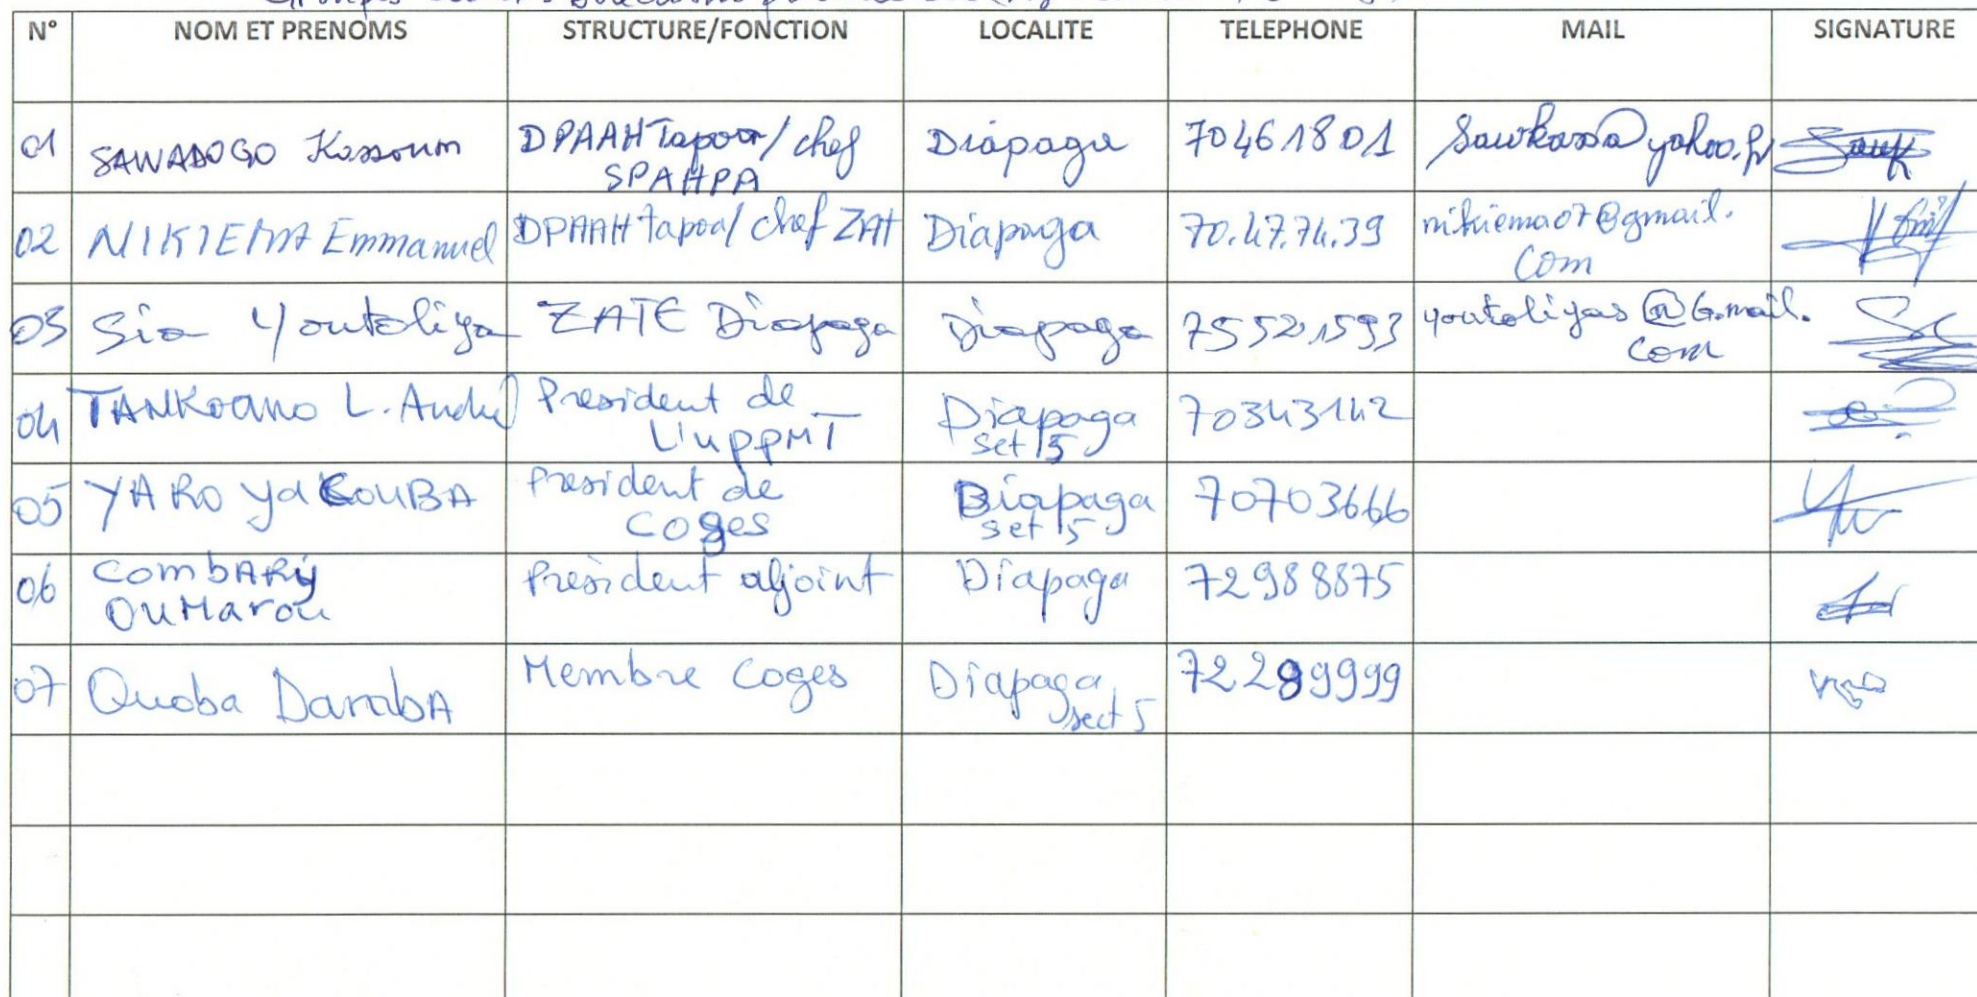 N° NOM ET PRENOMS STRUCTURE/FONCTION LOCALITE TELEPHONE MAIL SIGNATURE
01 SAWADOGO Kassoum DPAAH Tapoa/chef SPAHPA Diapaga 70461801 Sawkass@yahoo.fr
02 NIKIEMA Emmanuel DPAAH tapoa/ chef ZAT Diapaga 70.47.74.39 nikiema07@gmail.com
03 Sia Youtoliya ZATE Diapaga Diapaga 75521593 youtoliyas@G.mail.com
04 TANKoano L. André President de L'UPPMT Diapaga set 5 70343142
05 YARO YaCOUBA President de Coges Diapaga set 5 70703666
06 ComBARY OuMarou Président adjoint Diapaga 72988875
07 Ouoba DarabA Membre Coges Diapaga sect 5 72289999